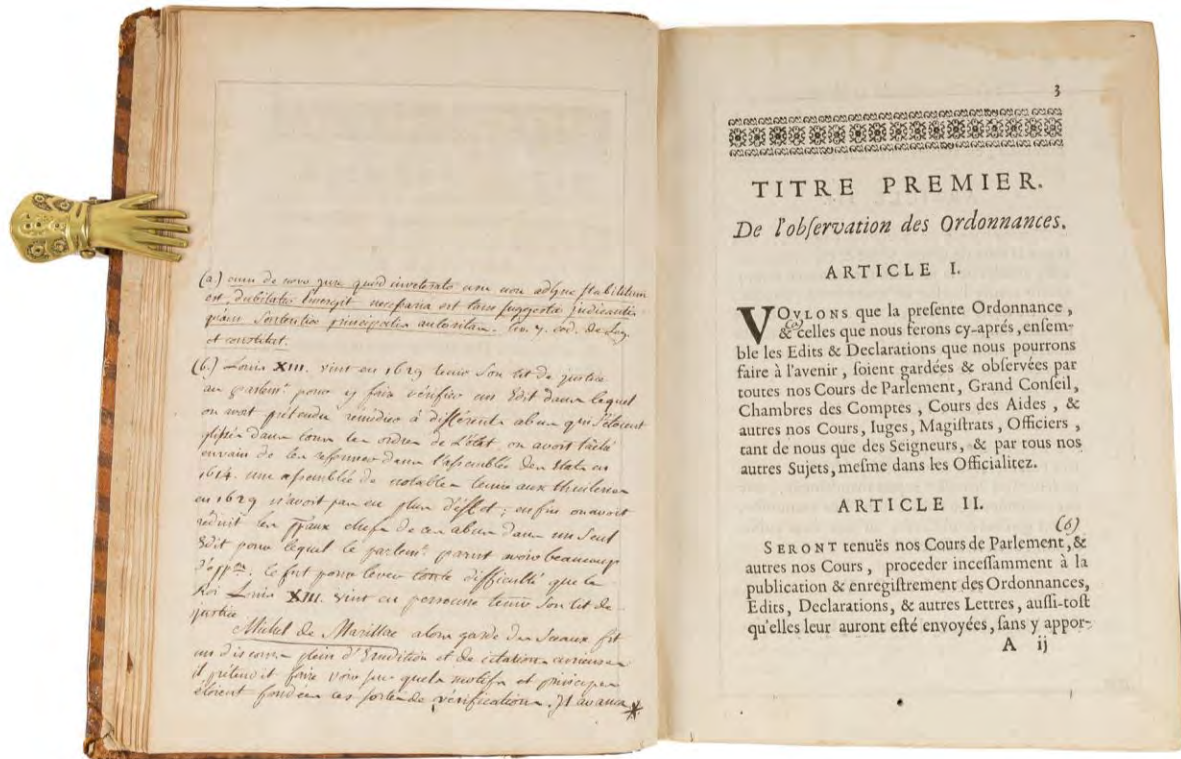 (a) cum de novo jure quod inveterato usu non adhuc stabilitum
est, dubitatio emergit necessaria est tam suggestio judicantis
quam sententiæ principalis autoritas.
et constitut.
(b.) Louis XIII. vint en 1629 tenir son lit de justice
au parlemt. pour y faire vérifier un Edit dans lequel
on avoit prétendu rémédier à différents abus qui s'étoient
glissés dans tous les ordres de L'état on avoit taché
envain de les reformer dans l'assemblée des Etats en
1614. une assemblée de notables tenue aux thuileries
en 1629 n'avoit pas eu plus d'effet; enfin on avoit
réduit les ppaux chefs de ces abus dans un seul
Edit pour lequel le parlemt. parut avoir beaucoup
d'oppon. ce fut pour lever toute difficulté que le
Roi Louis XIII. vint en personne tenir son lit de
justice
Michel de Marillac alors garde des sceaux fit
un discours plein d'Erudition et de citations curieuses
il prétendit faire voir sur quels motifs et principes
étoient fondées ces sortes de vérifications. Il avança *
3
TITRE PREMIER.
De l'obſervation des Ordonnances.
ARTICLE I.
VOVLONS que la preſente Ordonnance,
(a)
& celles que nous ferons cy-aprés, enſem-
ble les Edits & Declarations que nous pourrons
faire à l'avenir, ſoient gardées & obſervées par
toutes nos Cours de Parlement, Grand Conſeil,
Chambres des Comptes, Cours des Aides, &
autres nos Cours, Iuges, Magiſtrats, Officiers,
tant de nous que des Seigneurs, & par tous nos
autres Sujets, meſme dans les Officialitez.
ARTICLE II.
(b)
SERONT tenuës nos Cours de Parlement, &
autres nos Cours, proceder inceſſamment à la
publication & enregiſtrement des Ordonnances,
Edits, Declarations, & autres Lettres, auſſi-toſt
qu'elles leur auront eſté envoyées, ſans y appor-
A ij